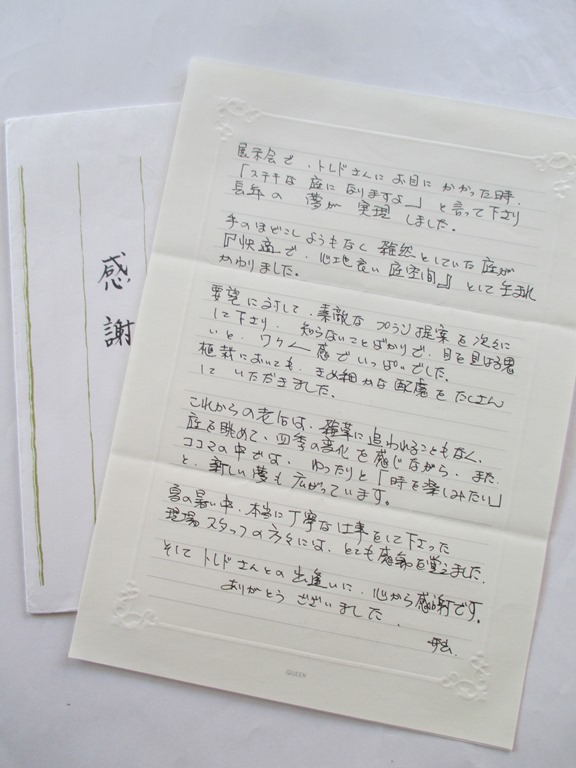 感謝
展示会で、トレドさんにお目にかかった時、
「ステキな庭になりますよ」と言って下さり
長年の夢が実現しました。
手のほどこしようもなく雑然としていた庭が
『快適で、心地良い庭空間』として生まれ
かわりました。
要望に対して、素敵なプラン提案を次々に
して下さり、知らないことばかりで、目を見はる思
いと、ワクワク感でいっぱいでした。
植栽においても、きめ細かな配慮をたくさん
して いただきました。
これからの老后は、雑草に追われることもなく、
庭を眺めて、四季の変化を感じながら、また、
ココマの中では、ゆったりと「時を楽しみたい」
と、新しい夢も広がっています。
夏の暑い中、本当に丁寧な仕事をして下さった
現場スタッフの方々には、とても感銘を覚えました。
そしてトレドさんとの出逢いに、心から感謝です。
ありがとうございました。
QUEEN